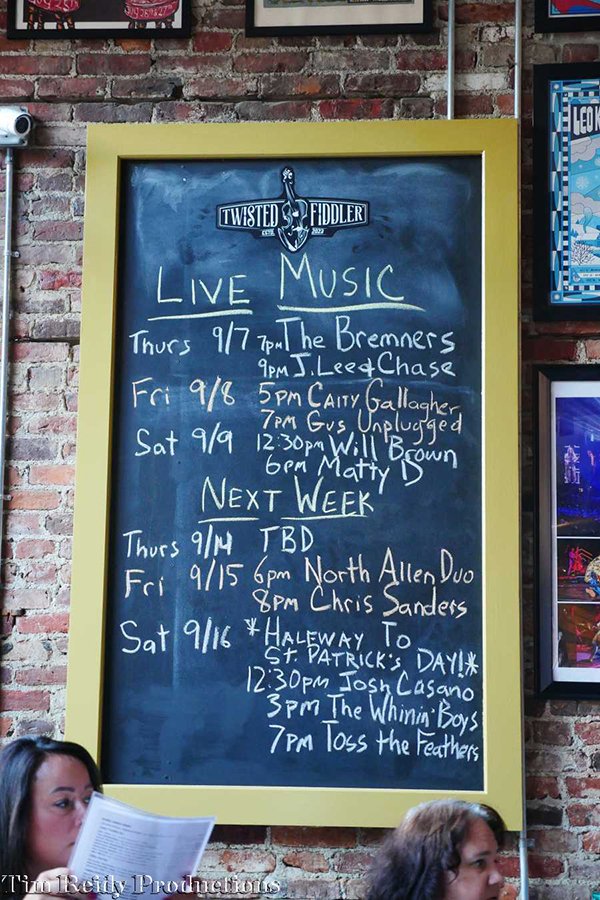 TWISTED FIDDLER
ESTD. 2023
LIVE MUSIC
Thurs 9/7 7pm The Bremners
9pm J. Lee & Chase
Fri 9/8 5pm Caity Gallagher
7pm Gus Unplugged
Sat 9/9 12:30pm Will Brown
6pm Matty D
NEXT WEEK
Thurs 9/14 TBD
Fri 9/15 6pm North Allen Duo
8pm Chris Sanders
Sat 9/16 *HALFWAY TO
ST. PATRICK'S DAY!*
12:30pm Josh Casano
3pm The Whinin' Boys
7pm Toss the Feathers
Tim Reidy Productions